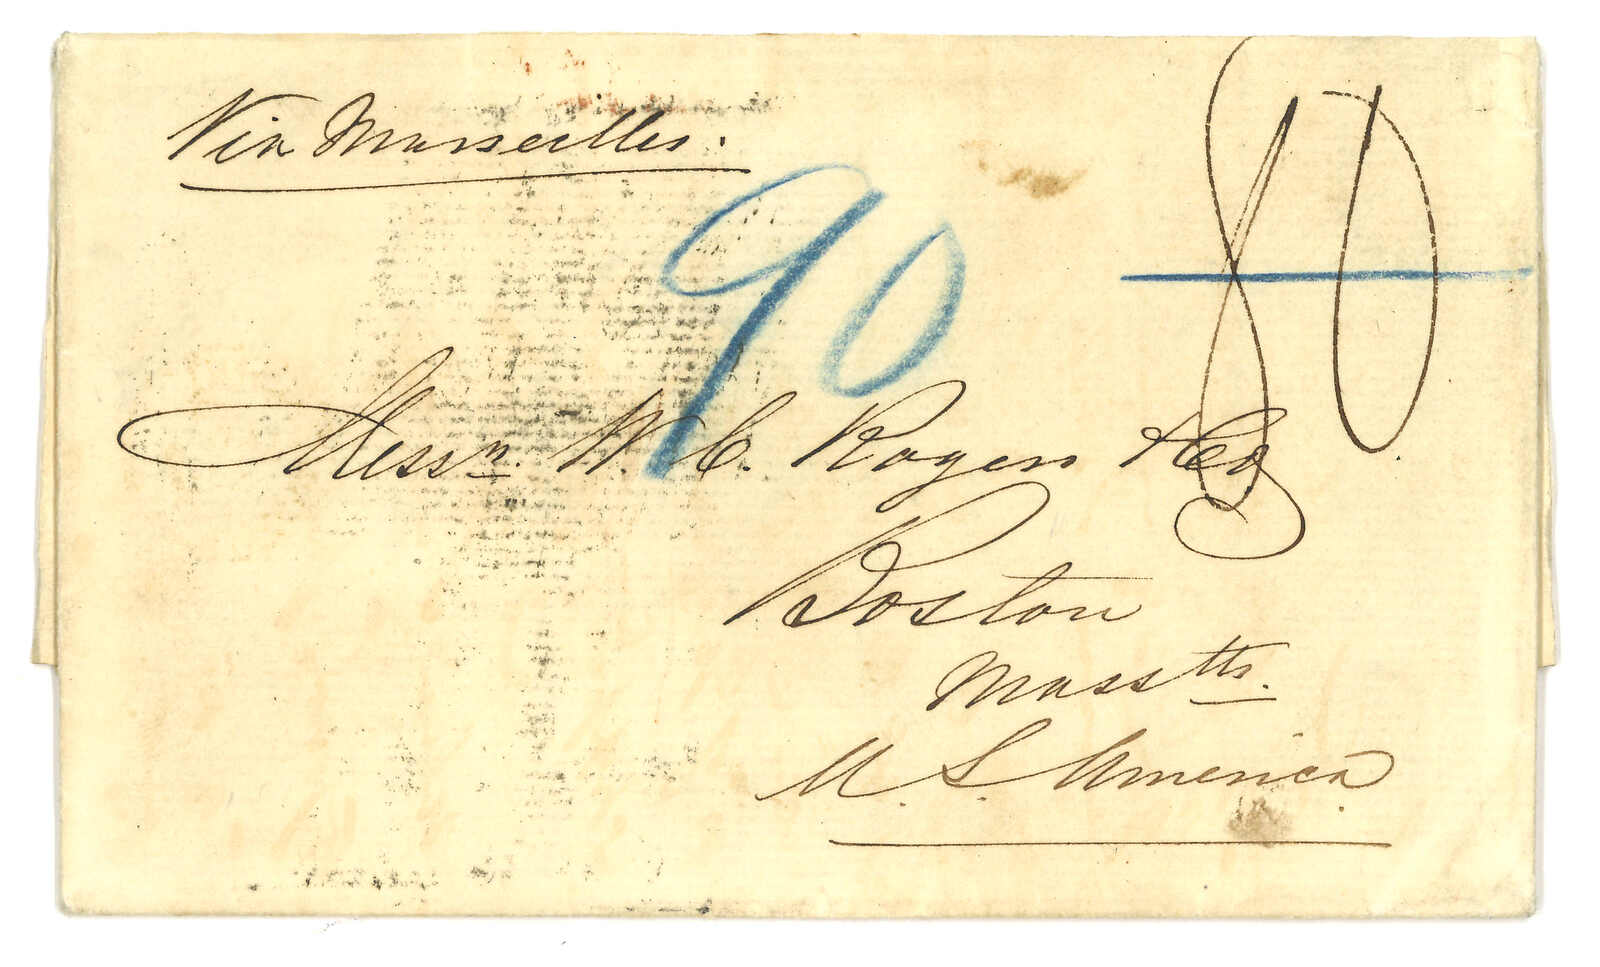 Via Marseilles.
80
90
Messrs. W. C. Rogers & Co
Boston
Masstts.
U. S. America